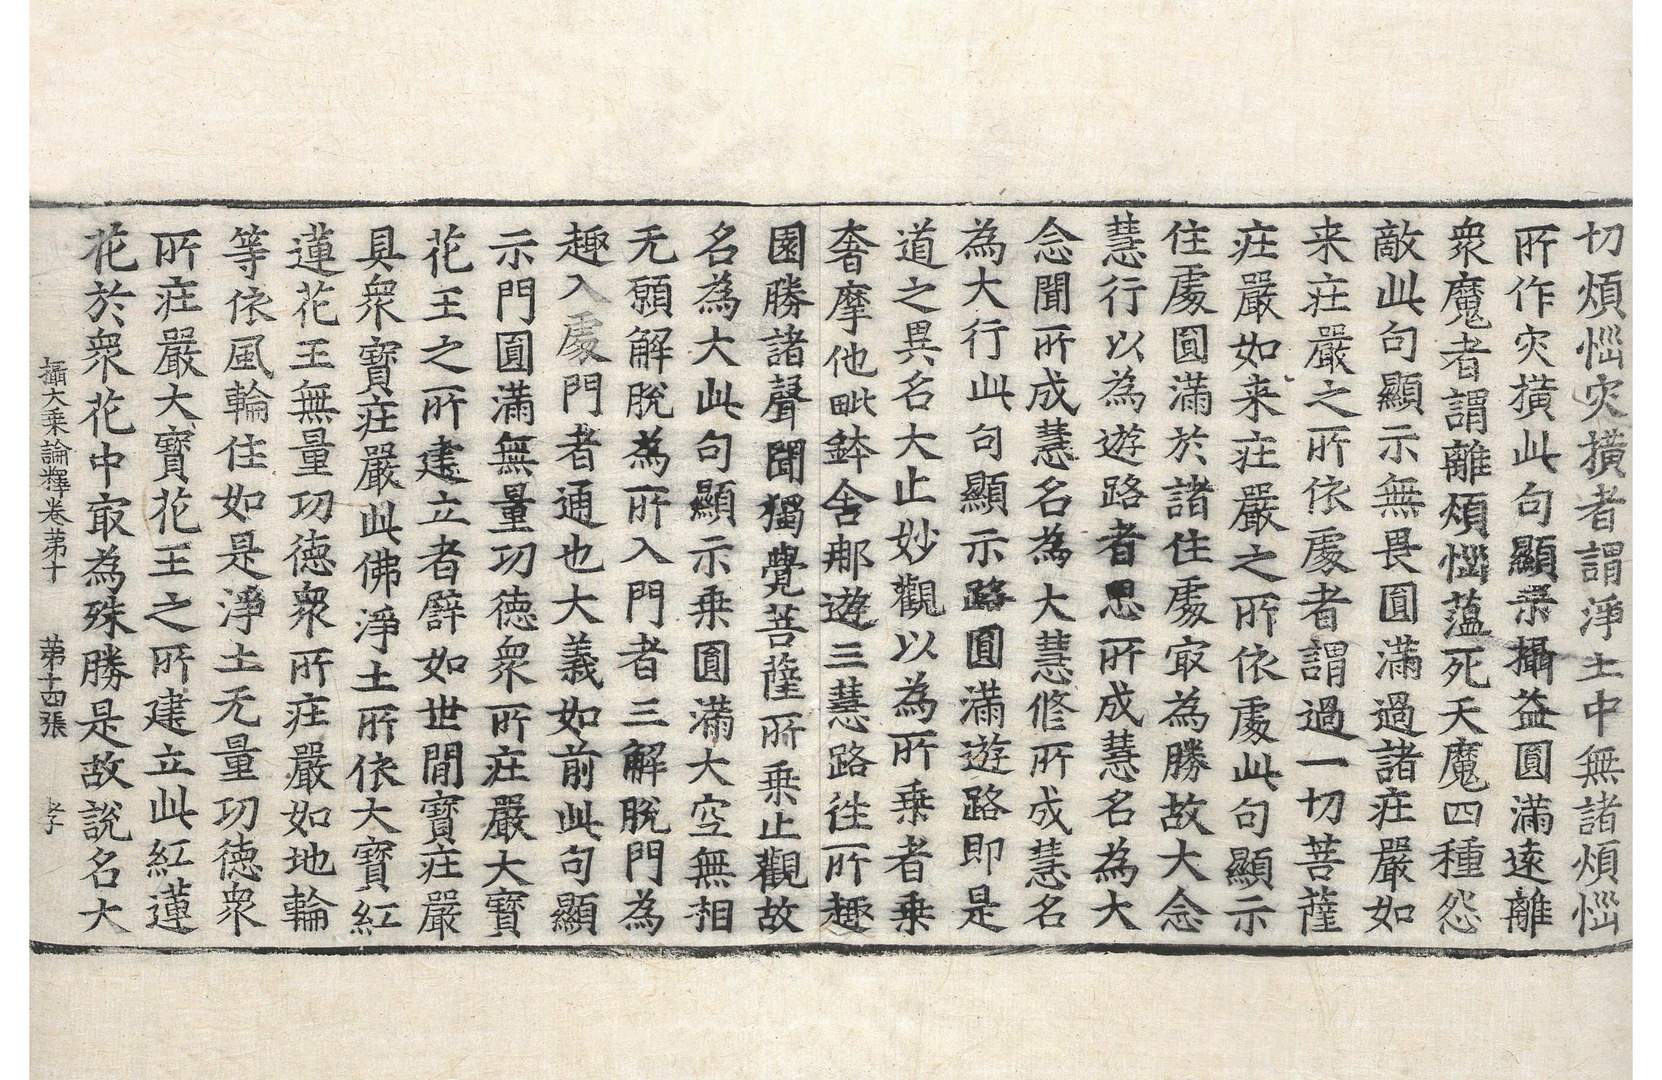 切煩惱灾撗者謂淨土中無諸煩惱
所作灾撗此句顯示攝益圓滿遠離
衆魔者謂離煩惱藴死天魔四種怨
敵此句顯示無畏圓滿過諸莊嚴如
来莊嚴之所依處者謂過一切菩薩
莊嚴如来莊嚴之所依處此句顯示
住處圓滿於諸住處㝡為勝故大念
慧行以為遊路者思所成慧名為大
念聞所成慧名為大慧修所成慧名
為大行此句顯示路圓滿遊路即是
道之異名大止妙觀以為所乗者乗
奢摩他毗鉢舍那遊三慧路往所趣
園勝諸聲聞獨覺菩薩所乗止觀故
名為大此句顯示乗圓滿大空無相
无願解脫為所入門者三解脫門為
趣入處門者通也大義如前此句顯
示門圓滿無量功德衆所莊嚴大寳
花王之所建立者譬如世間寳莊嚴
具衆寳莊嚴此佛淨土所依大寳紅
蓮花王無量功德衆所莊嚴如地輪
等依風輪住如是淨土无量功德衆
所莊嚴大寳花王之所建立此紅蓮
花於衆花中㝡為殊勝是故說名大
攝大乗論釋卷苐十 苐十四張 孝